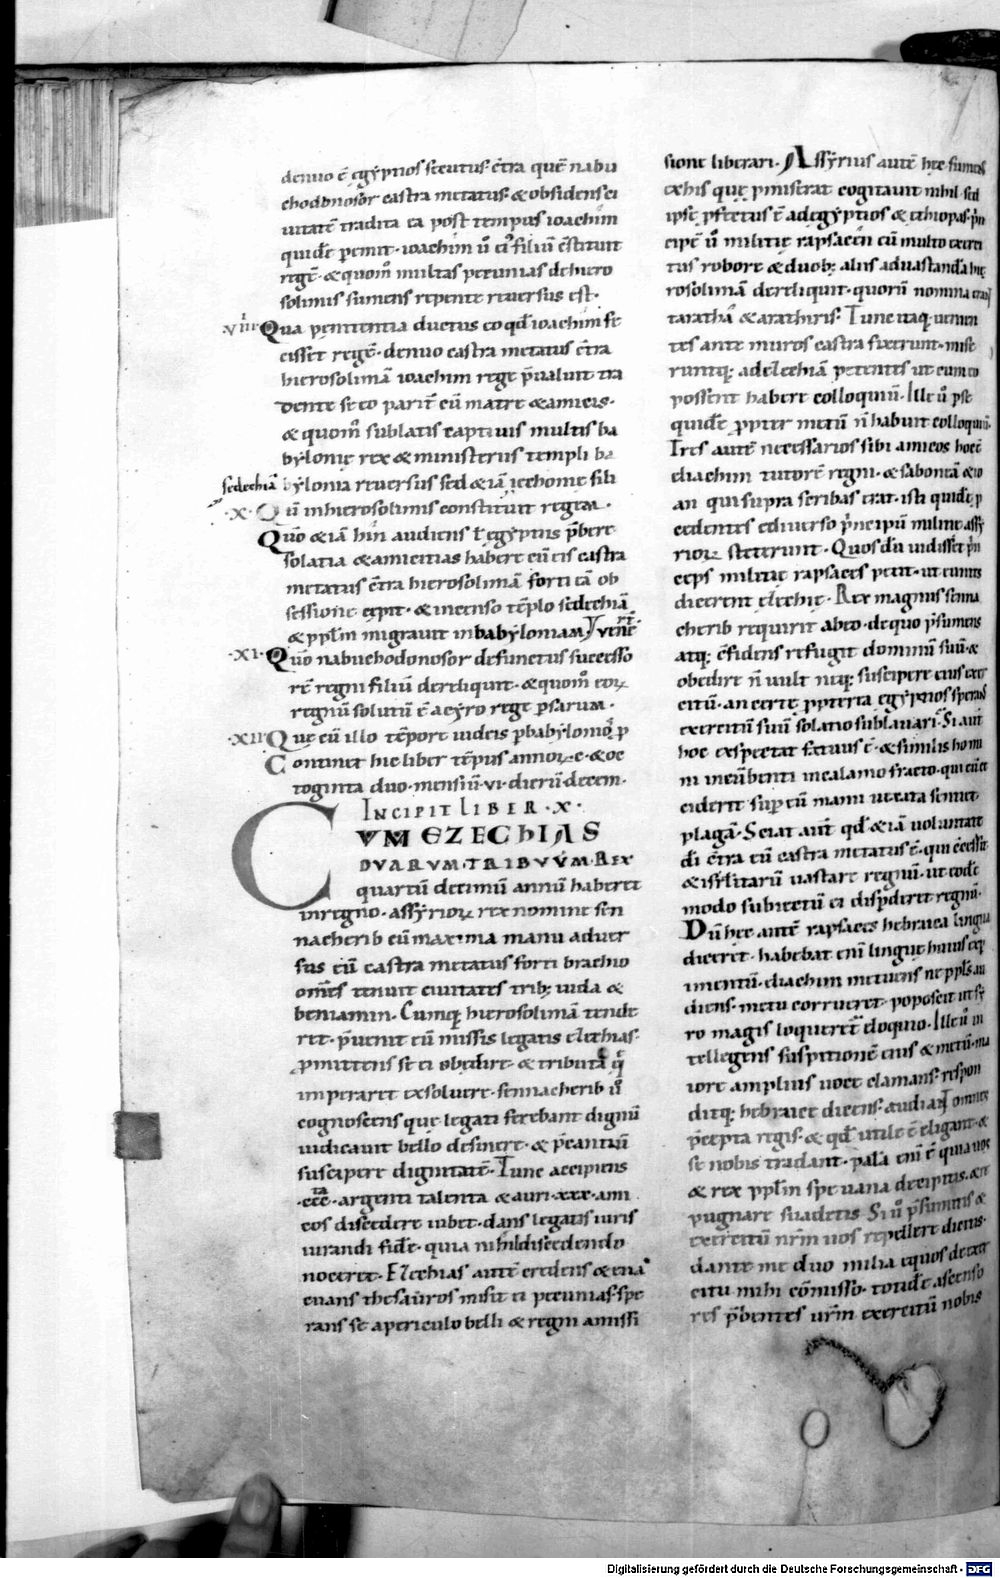 denuo ē egyptios secutus· c̄tra quē nabu
chodonosor castra metatus· & obsidens ci
uitatē tradita ea post tempus ioachim
quidē pemit· ioachim ū ei' filiū c̄stituit
regē· & quom̄ multas pecunias de hiero
solimis sumens repente reuersus est·
·viiii· Qua penitentia ductus eo qđ ioachim fe
cisset regē· denuo castra metatus c̄tra
hierosolimā ioachim rege p̄ualuit tra
dente se eo parit̄ cū matre & amicis·
& quom̄ sublatis captiuis multis ba
bylonię rex & ministeriis templi ba
sedechiā bylonia reuersus sed & iā iechonie fili
·x· Qū in hierosolimis constituit regem·
Quō & iā hīn audiens t̄ egyptiis p̄bere
solatia & amicitias habere cū eis castra
metatus c̄tra hierosolimā forti eā ob
sessione cepit· & incenso tēplo sedechiā
& pp̄lm migrauit in babyloniam
·xi· Quō nabuchodonosor defunctus successo
rē regni filiū dereliquit· & quom̄ eoꝝ
regnū solutū ē a cyro rege p̄sarum·
·xii· Que cū illo tēpore iudeis p̄ babylonio
Continet hic liber tēpus annoꝝ c· & oc
toginta duo· mensiū· vi· dierū decem·
INCIPIT LIBER ·X·
CVM EZECHIAS
DVARVM·TRIBVVM·REX
quartū decimū annū haberet
in regno· assyrioꝝ rex nomine sen
nacherib cū maxima manu aduer
sus eū castra metatus forti brachio
om̄es tenuit ciuitates trib; iuda &
beniamin· Cumq; hierosolimā tende
ret· p̄uenit eū missis legatis ezechias·
p̄mittens se ei obedire· & tributa q̄
imperaret exsoluere· sennacherib ū
cognoscens que legati ferebant dignū
iudicauit bello desinere· & p̄cantiū
suscipere dignitatē· Tunc accipiens
·ccc· argenti talenta & auri· xxx· ami
cos discedere iubet· dans legatis iuris
iurandi fidē· quia nihil discedendo
noceret· Ezechias autē credens & eua
cuans thesauros misit ei pecunias· spe
rans se a periculo belli & regni amissi
sione liberari· Assyrius autē hęc sumens
ex his quę p̄miserat cogitauit nihil· sed
ipse p̄fectus ē ad egyptios & ethiopas· p̄n
cipē ū militię rapsacen cū multo exerci
tus robore & duob; aliis ad uastandā hie
rosolimā dereliquit· quorū nomina erant
tarathā & arathiris· Tunc itaq; uenien
tes ante muros castra fixerunt· mise
runtq; ad ezechiā petentes ut cum eo
possent habere colloquiū· Ille ū p̄ se
quidē ꝓpter metū n̄ habuit colloquiū·
Tres autē necessarios sibi amicos hoc ē
eliachim tutorē regni· & saboneā & io
an qui supra scribas erat· isti quidē p̄
cedentes ediuerso p̄ncipū militie assy
rioꝝ steterunt· Quos dū uidisset p̄n
ceps militię rapsaces petit· ut euntes
dicerent ezechie· Rex magnus senna
cherib requirit abeo· de quo p̄sumens
atq; c̄fidens refugit dominū suū· &
obedire n̄ uult neq; suscipere eius exer
citū· an certe ꝓpterea egyptios sperans
exercitū suū solatio subleuari· Si aut̄
hoc exspectat fatuus ē· & similis homi
ni incūbenti in calamo fracto· qui cū ce
ciderit sup̄ eū manū uexata sentiet
plagā· Sciat aut̄ qđ & iā uoluntate
d̄i c̄tra eū castra metatus ē· qui c̄cessit
& isrl̄itarū uastare regnū· ut eodē
modo subiectū ei disp̄deret regnū·
Dū hęc autē rapsaces hebraea lingua
diceret· habebat eni linguę huius exp̄
imentū· eliachim metuens ne pp̄ls au
diens· metu corrueret· poposcit ut sy
ro magis loqueret̄ eloquio· Ille ū in
tellegens suspitionē eius & metū· ma
iore amplius uoce clamans· respon
ditq; hebraice dicens· audiant omnes
p̄cepta regis· & qđ utile ē eligant· &
se nobis tradant· palā eni ē quia uos
& rex pp̄lm spe uana decipitis· & re
pugnare suadetis· Si ū p̄sumitis &
exercitū nr̄m uos repellere dicitis·
dante me duo milia equos de exer
citu mihi cōmisso· totidē ascenso
res p̄bentes ur̄m exercitū nobis
Digitalisierung gefördert durch die Deutsche Forschungsgemeinschaft · DFG